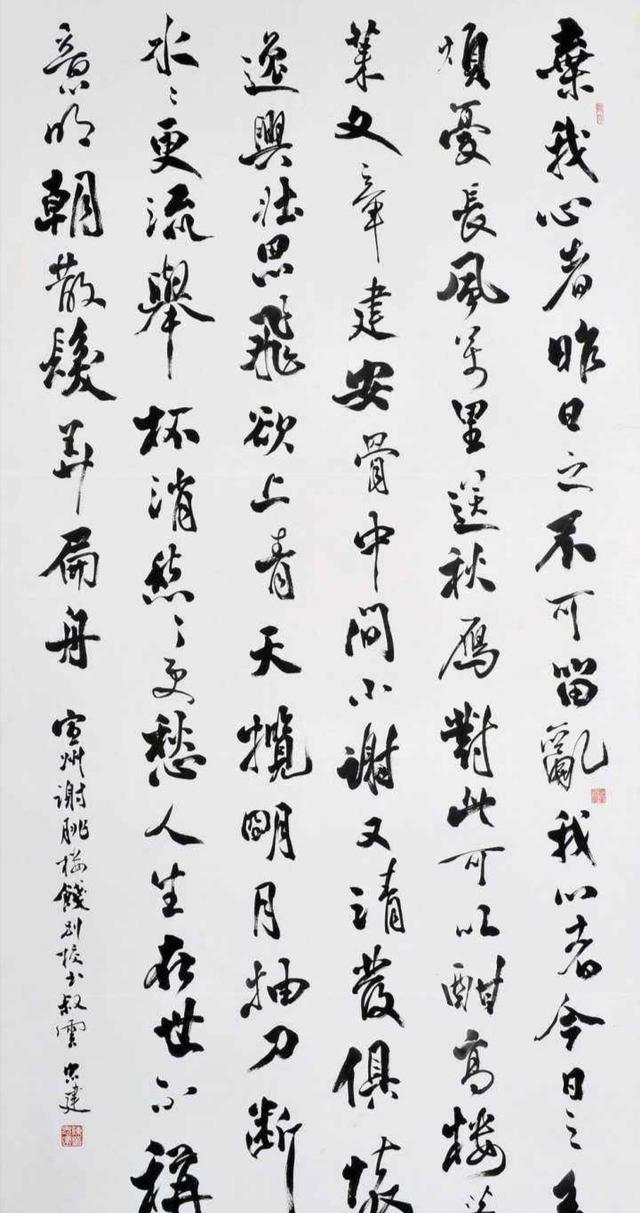 棄我去者昨日之不可留亂我心者今日之多
煩憂長風萬里送秋雁對此可以酣高樓蓬
萊文章建安骨中間小謝又清發俱懷
逸興壯思飛欲上青天攬明月抽刀斷
水〻更流舉杯消愁〻更愁人生在世不稱
意明朝散髮弄扁舟
宣州謝朓樓餞別校書叔雲 建